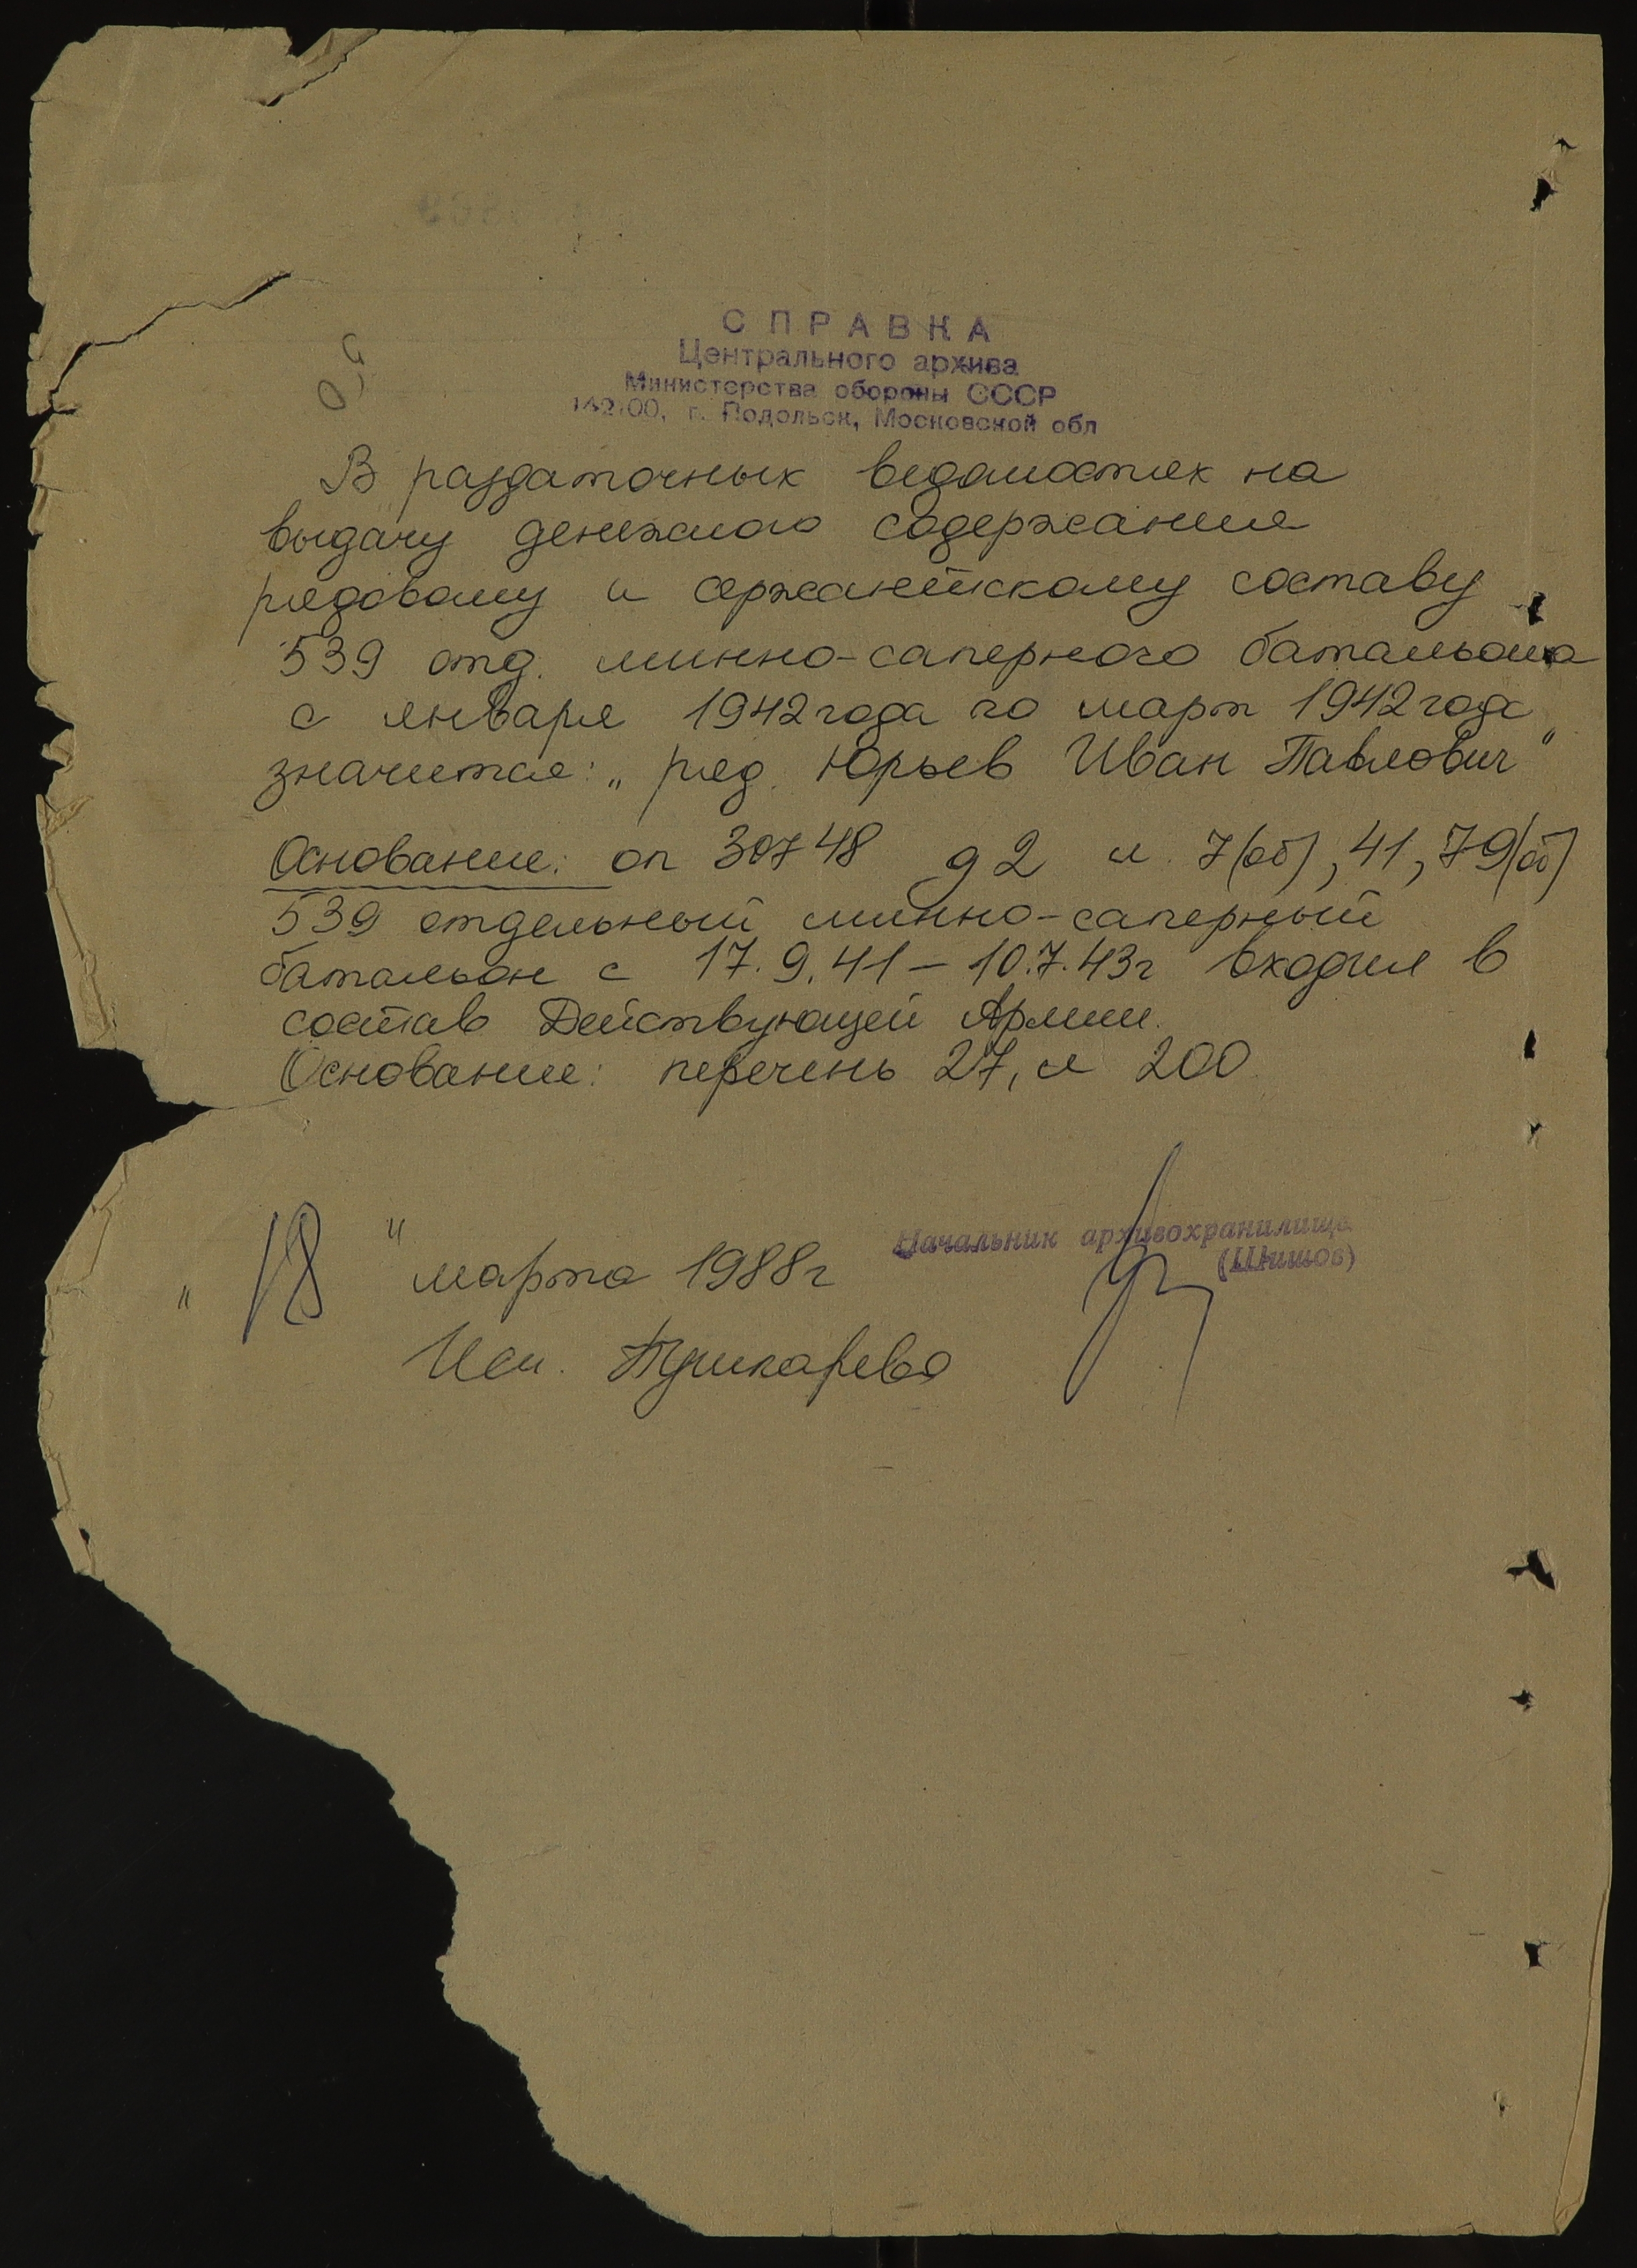 СПРАВКА
Центрального архива
Министерства обороны СССР
142100, г. Подольск, Московской обл
В раздаточных ведомостях на
выдачу денежного содержания
рядовому и сержантскому составу
539 отд. минно-саперного батальона
с января 1942 года по март 1942 года
значится: „ряд. Юрьев Иван Павлович"
Основание: оп 30748 д 2 л. 7(об), 41, 79(об)
539 отдельный минно-саперный
батальон с 17.9.41 – 10.7.43г входил в
состав Действующей Армии.
Основание: перечень 27, л 200
Начальник архивохранилища
(Шишов)
„18" марта 1988г
Исп. Пушкарева